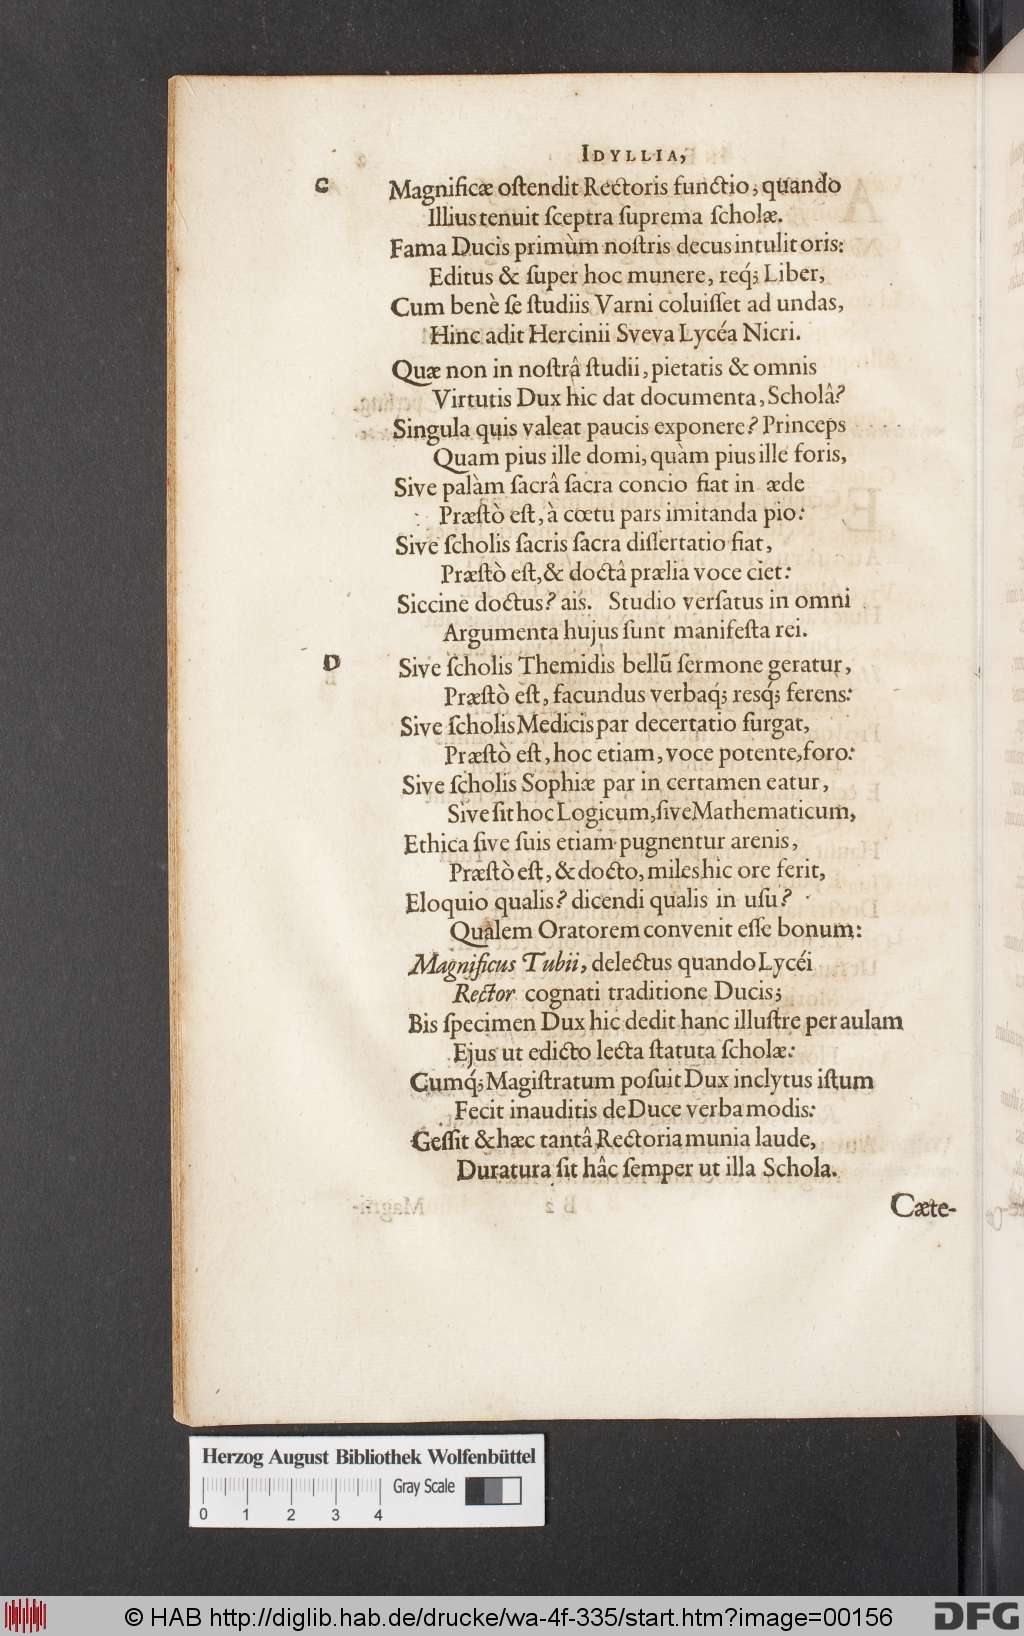 IDYLLIA,
C Magnificæ oſtendit Rectoris functio, quando
Illius tenuit ſceptra ſuprema ſcholæ.
Fama Ducis primùm noſtris decus intulit oris:
Editus & ſuper hoc munere, req́; Liber,
Cum benè ſe ſtudiis Varni coluiſſet ad undas,
Hinc adit Hercinii Sveva Lycéa Nicri.
Quæ non in noſtrâ ſtudii, pietatis & omnis
Virtutis Dux hic dat documenta, Scholâ?
Singula quis valeat paucis exponere? Princeps
Quam pius ille domi, quàm pius ille foris,
Sive palàm ſacrâ ſacra concio fiat in æde
Præſtò eſt, à cœtu pars imitanda pio:
Sive ſcholis ſacris ſacra diſſertatio fiat,
Præſtò eſt, & doctâ prælia voce ciet:
Siccine doctus? ais. Studio verſatus in omni
Argumenta hujus ſunt manifeſta rei.
D Sive ſcholis Themidis bellũ ſermone geratur,
Præſtò eſt, facundus verbaq́; resq́; ferens:
Sive ſcholis Medicis par decertatio ſurgat,
Præſtò eſt, hoc etiam, voce potente, foro:
Sive ſcholis Sophiæ par in certamen eatur,
Sive ſit hoc Logicum, ſive Mathematicum,
Ethica ſive ſuis etiam pugnentur arenis,
Præſtò eſt, & docto, miles hic ore ferit,
Eloquio qualis? dicendi qualis in uſu?
Qualem Oratorem convenit eſſe bonum:
Magnificus Tubii, delectus quando Lycéi
Rector cognati traditione Ducis;
Bis ſpecimen Dux hic dedit hanc illuſtre per aulam
Ejus ut edicto lecta ſtatuta ſcholæ:
Cumq́; Magiſtratum poſuit Dux inclytus iſtum
Fecit inauditis de Duce verba modis:
Geſſit & hæc tantâ Rectoria munia laude,
Duratura ſit hâc ſemper ut illa Schola.
Cæte-
Herzog August Bibliothek Wolfenbüttel
Gray Scale
0 1 2 3 4
© HAB http://diglib.hab.de/drucke/wa-4f-335/start.htm?image=00156
DFG